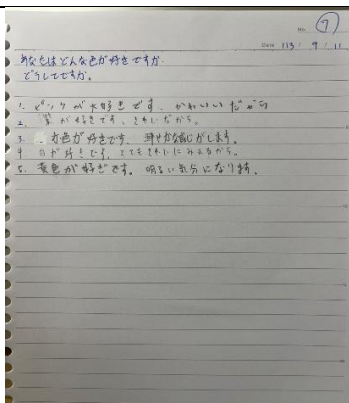 No. ⑦
Date 113 / 9 / 11
あなたはどんな色が好きですか.
どうしてですか。
1. ピンクが大好きです、かわいいだから
2. 紫が好きです、きれいだから。
3. 赤色が好きです、華やかな感じがします。
4 白が好きです、とてもきれいにみえるから。
5. 黄色が好きです。明るい気分になります。